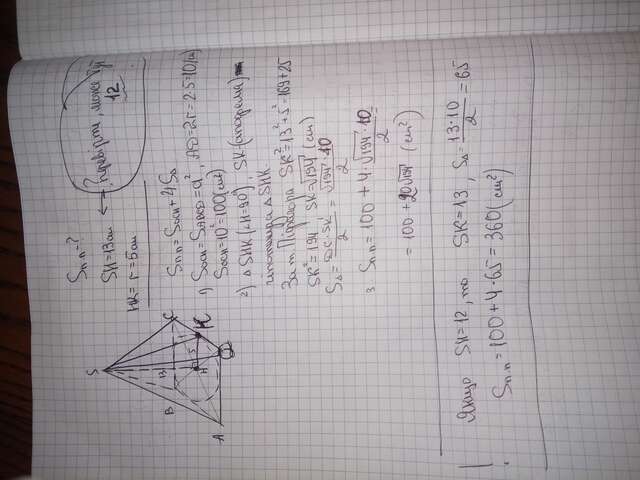 Sп.п. - ?
SH = 13 см ← Перевірте, може буде 12
HK = r = 5 см
S
B
C
13
5
H
K
A
D
Sп.п. = Sосн + 4S△
1) Sосн = SABCD = a², AD = 2r = 2·5 = 10 (см)
Sосн = 10² = 100 (см²)
2) △SHK (∠H = 90°), SK - (апофема)
гіпотенуза △SHK
За т. Піфагора SK² = 13² + 5² = 169 + 25
SK² = 194 SK = √194 (см)
S△ = DC·SK / 2 = √194·10 / 2
3 Sп.п. = 100 + 4·√194·10 / 2
= 100 + 20√194 (см²)
! Якщо SH = 12, то SK = 13, S△ = 13·10 / 2 = 65
Sп.п. = 100 + 4·65 = 360 (см²)